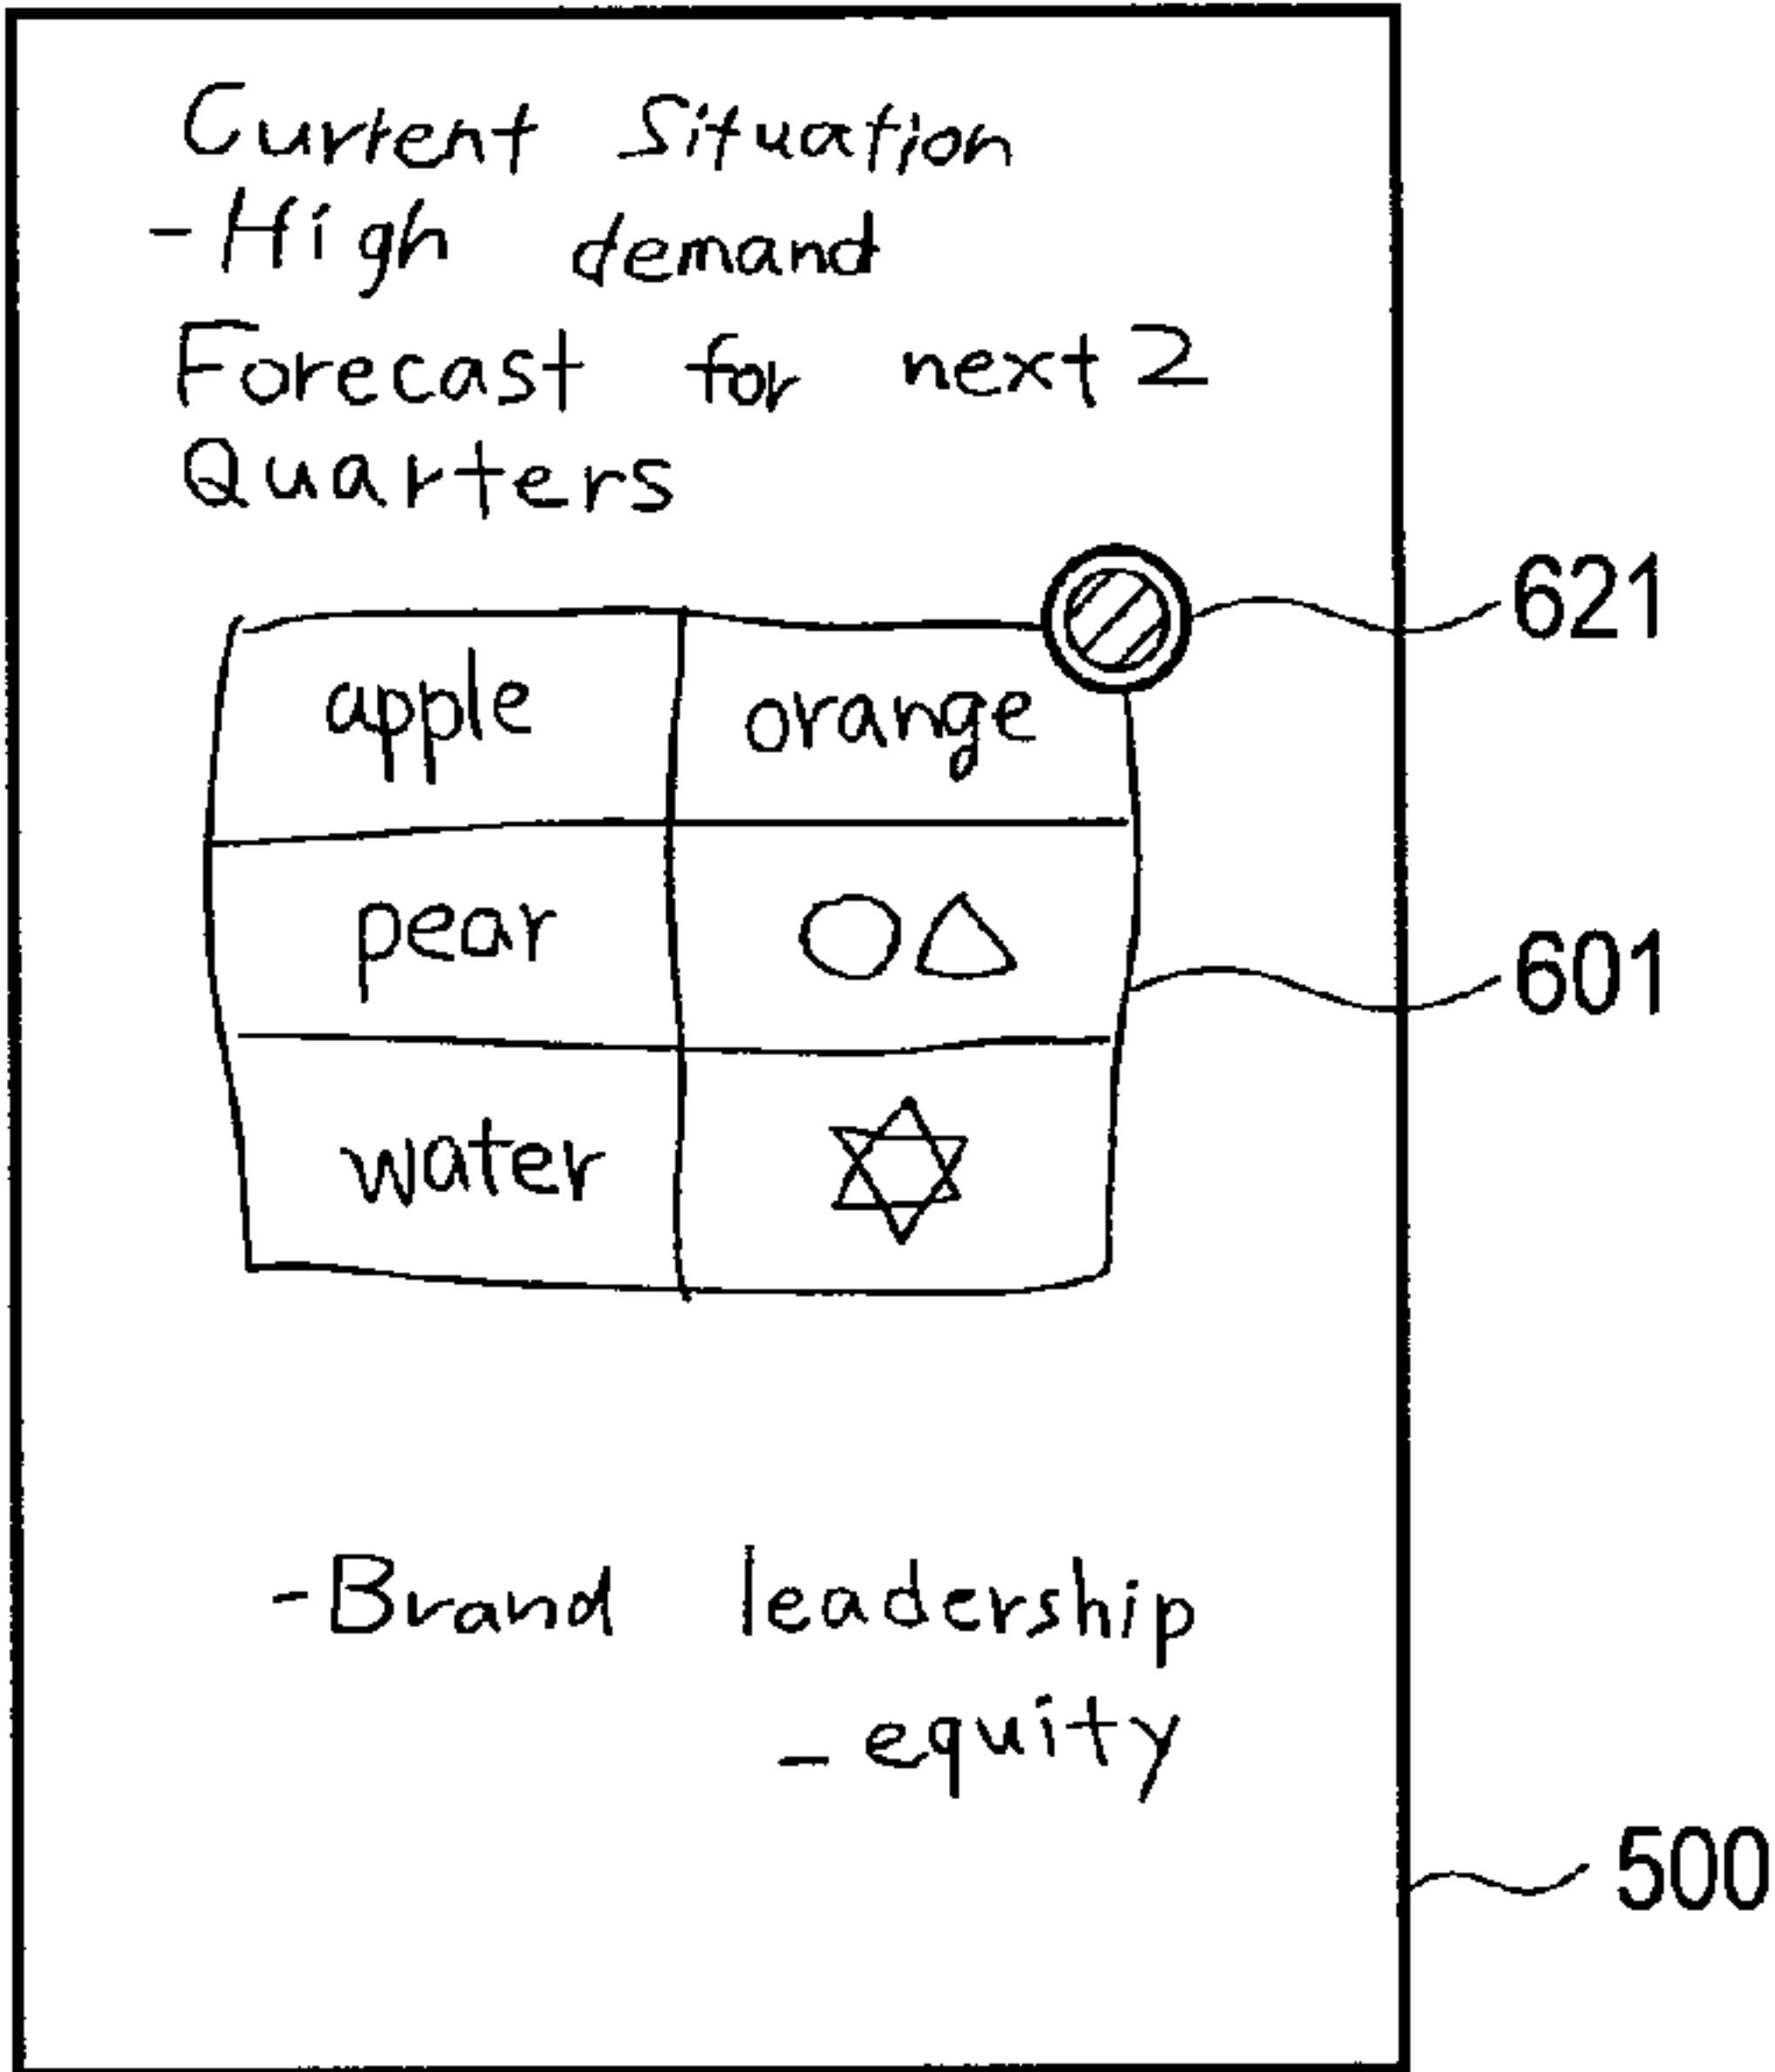 Current Situation
-High demand
Forecast for next 2
Quarters
621
apple orange
pear
601
water
-Brand leadership
- equity
500